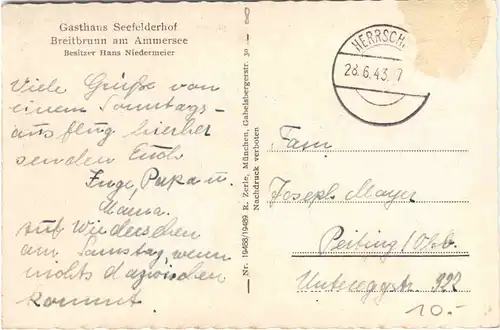 Gasthaus Seefelderhof
Breitbrunn am Ammersee
Besitzer Hans Niedermeier
Viele Grüße von
einem Sonntags-
ausflug hierher
senden Euch
Inge, Papa u.
Mama.
Auf Wiedersehen
am Samstag, wenn
nichts dazwischen
kommt.
Nr. 19488/19489 R. Zerle, München, Gabelsbergerstr. 30
Nachdruck verboten
HERRSCH
28.6.43.
Fam
Joseph Mayer
Peiting/Obb.
Untereggstr. 322
10.-